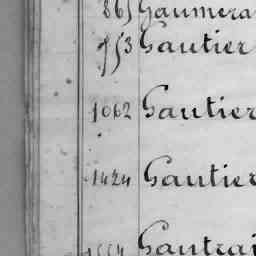 865 Gaumera
953 Gautier
1062 Gautier
1424 Gautier
Gautrai